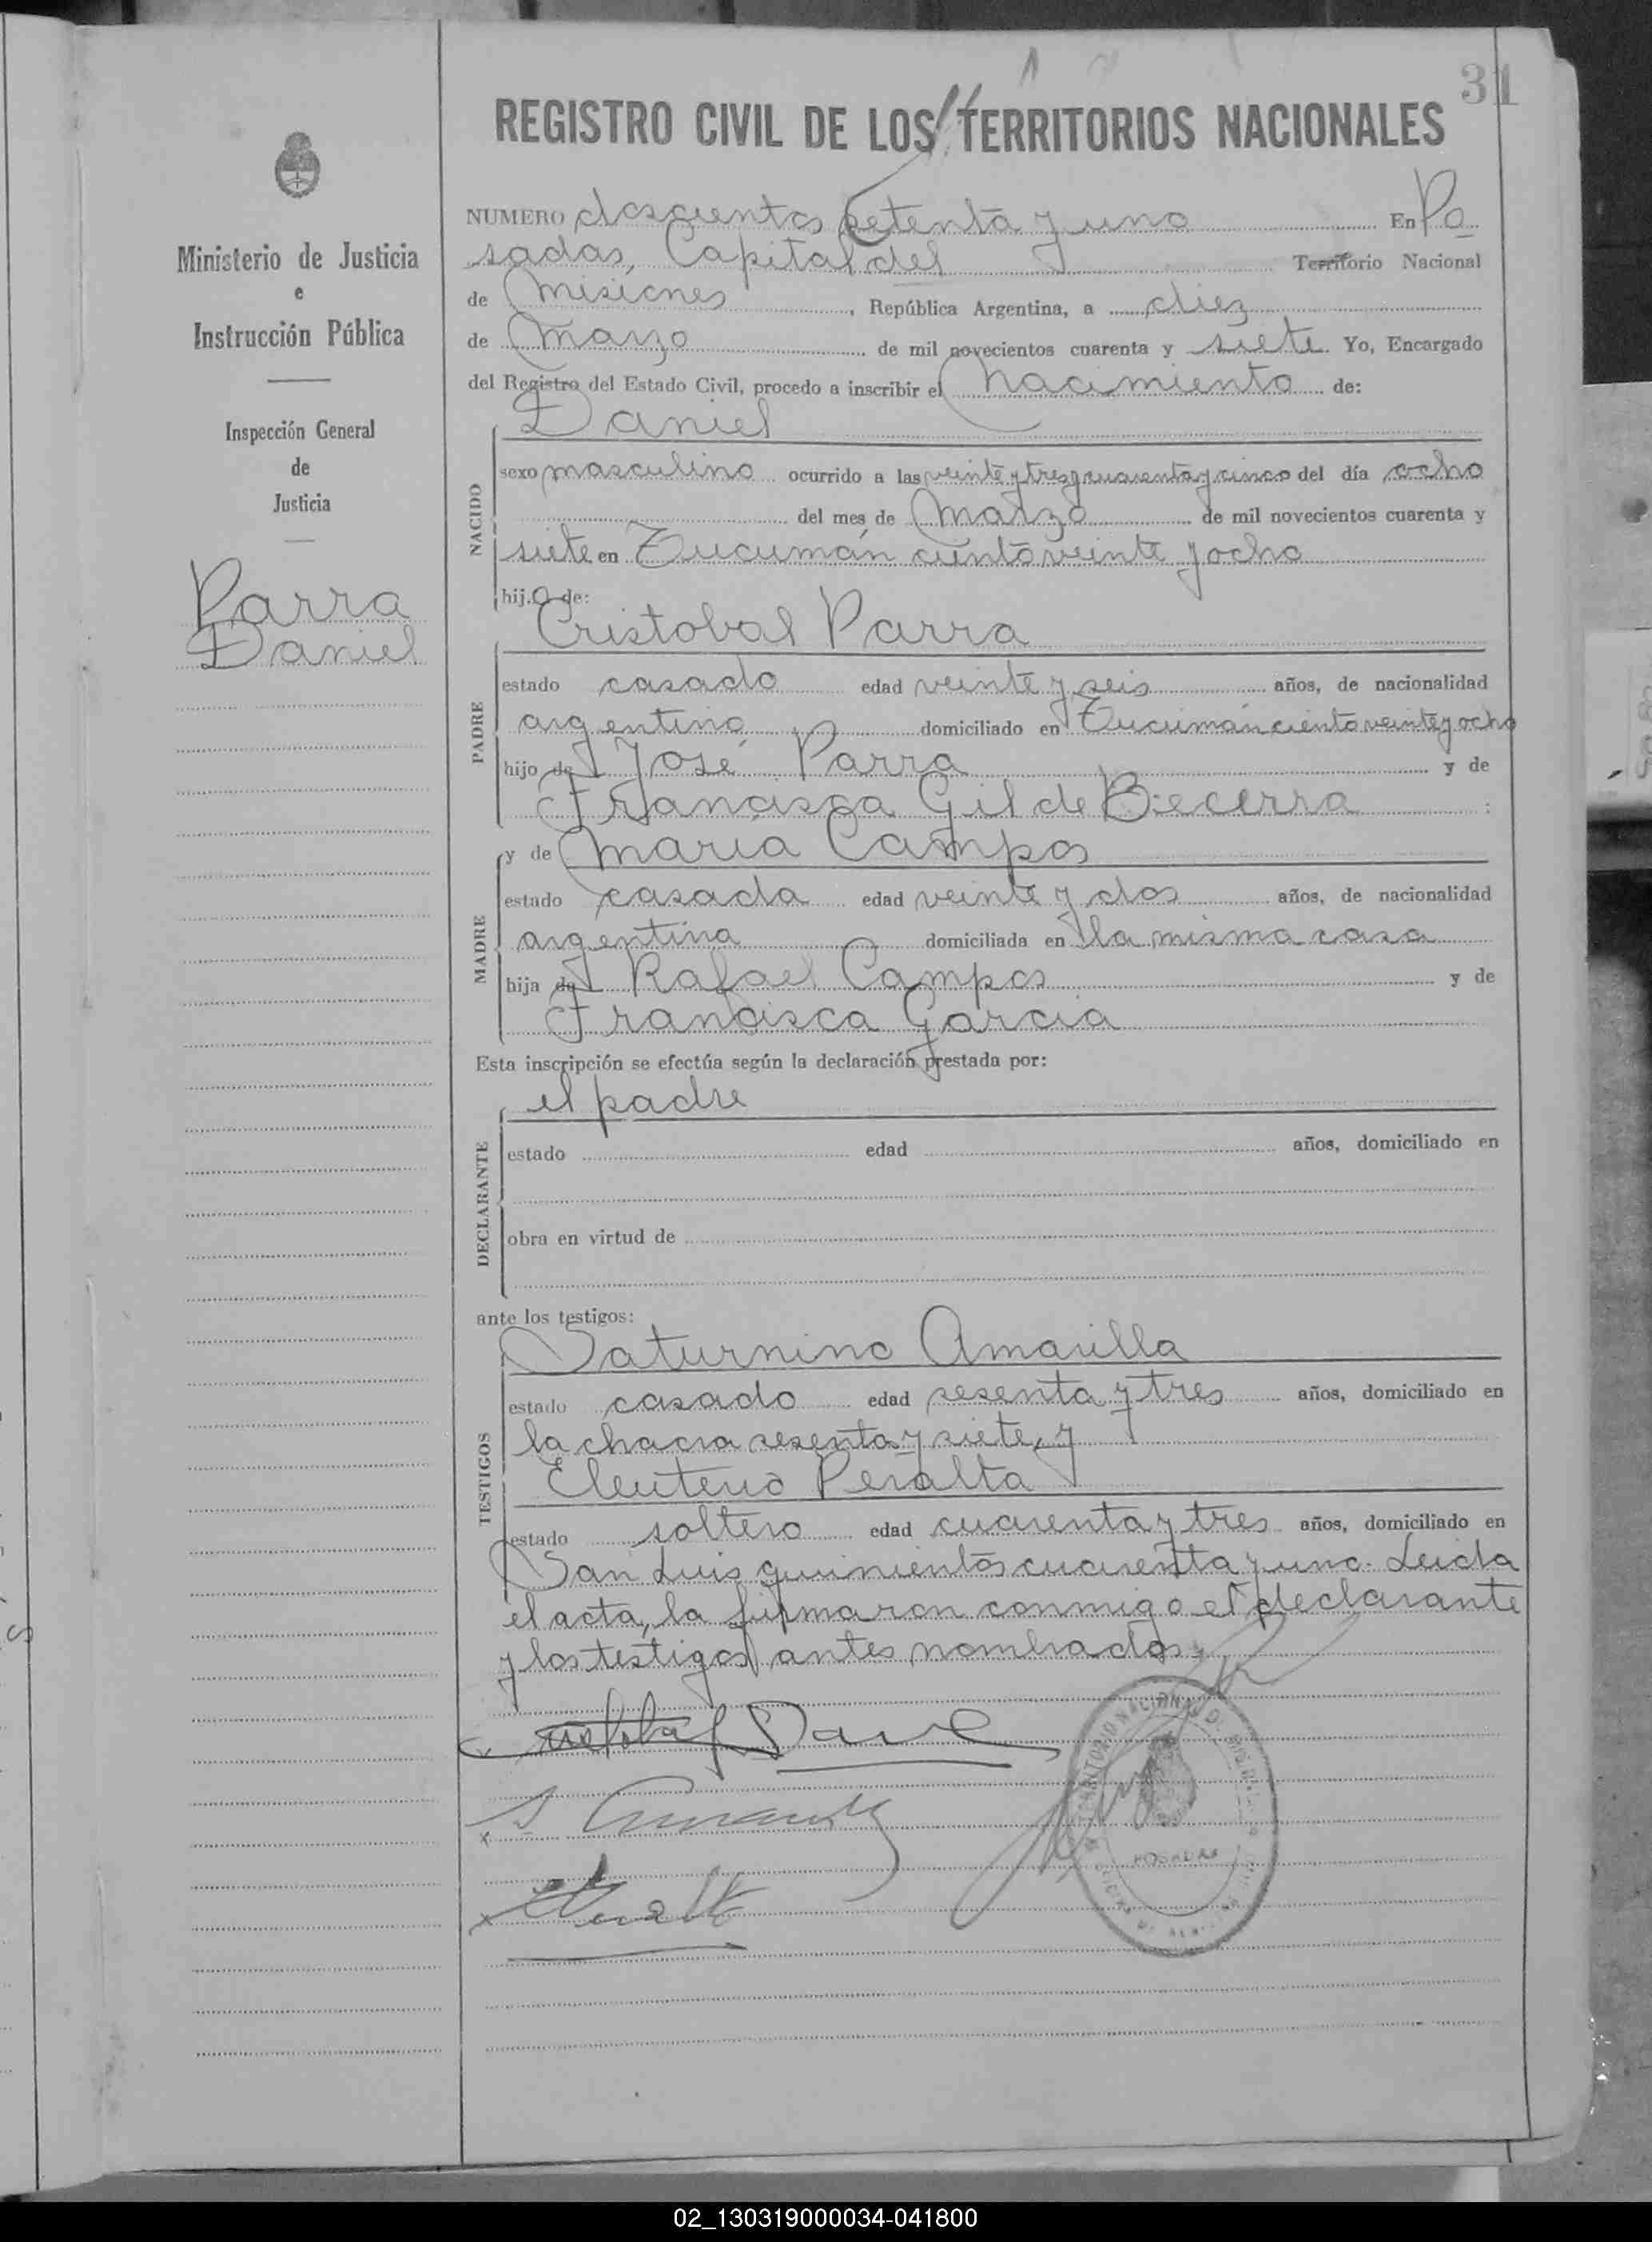 31
REGISTRO CIVIL DE LOS TERRITORIOS NACIONALES
Ministerio de Justicia
e
Instrucción Pública
Inspección General
de
Justicia
Parra
Daniel
NUMERO doscientos setenta y uno En Po
sadas, Capital del Territorio Nacional
de Misiones, República Argentina, a diez
de Marzo de mil novecientos cuarenta y siete Yo, Encargado
del Registro del Estado Civil, procedo a inscribir el nacimiento de:
Daniel
NACIDO
sexo masculino ocurrido a las veinte y tres y cuarenta y cinco del día ocho
del mes de Marzo de mil novecientos cuarenta y
siete en Tucumán ciento veinte y ocho
hijo de:
Cristobal Parra
PADRE
estado casado edad veinte y seis años, de nacionalidad
argentino domiciliado en Tucumán ciento veinte y ocho
hijo de José Parra y de
Francisca Gil de Becerra :
y de María Campos
MADRE
estado casada edad veinte y dos años, de nacionalidad
argentina domiciliada en la misma casa
hija de Rafael Campos y de
Francisca Garcia
Esta inscripción se efectúa según la declaración prestada por:
el padre
DECLARANTE
estado edad años, domiciliado en
obra en virtud de
ante los testigos:
Saturnino Amarilla
TESTIGOS
estado casado edad sesenta y tres años, domiciliado en
la chacra sesenta y siete, y
Eleuterio Peralta
estado soltero edad cuarenta y tres años, domiciliado en
San Luis quinientos cuarenta y uno. Leida
el acta, la firmaron conmigo el declarante
y los testigos antes nombrados.
POSADAS
02_130319000034-041800